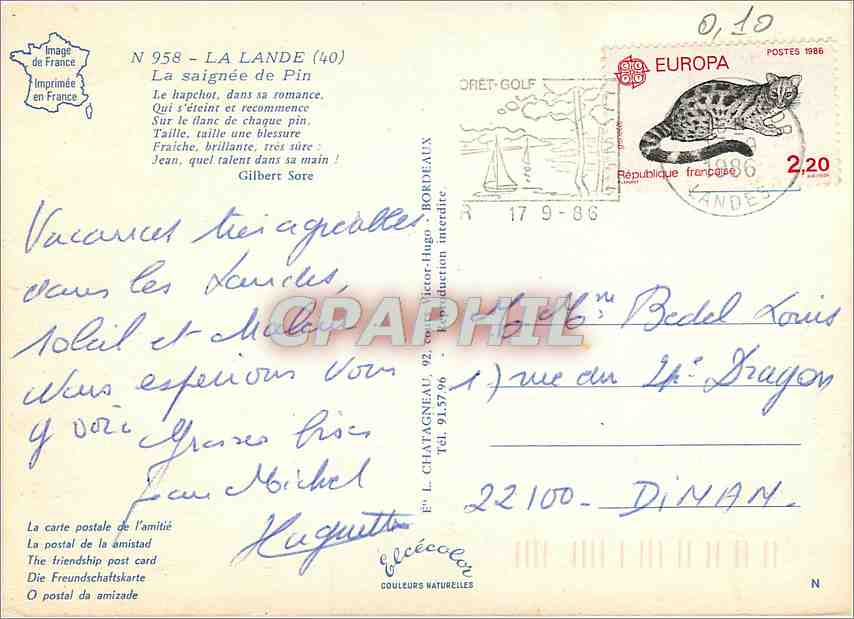 0,10
Image
de France
Imprimée
en France
N 958 - LA LANDE (40)
La saignée de Pin
Le hapchot, dans sa romance,
Qui s'éteint et recommence
Sur le flanc de chaque pin,
Taille, taille une blessure
Fraîche, brillante, très sûre :
Jean, quel talent dans sa main !
Gilbert Sore
ORÊT-GOLF
R 17 9-86
EUROPA
POSTES 1986
genette
République française
2,20
1986
LANDES
Vacances très agréables
dans les Landes,
soleil et
Nous espérions vous
y voir
Grosses bises
Jean Michel
Huguette
Éts L. CHATAGNEAU, 92, cours Victor-Hugo - BORDEAUX
Tél. 91.57.96 - Reproduction interdite.
CPARHIL
M. Mme Bedel Louis
1) rue du Dragon
22100 - DINAN.
La carte postale de l'amitié
La postal de la amistad
The friendship post card
Die Freundschaftskarte
O postal da amizade
Elcécolor
COULEURS NATURELLES
N